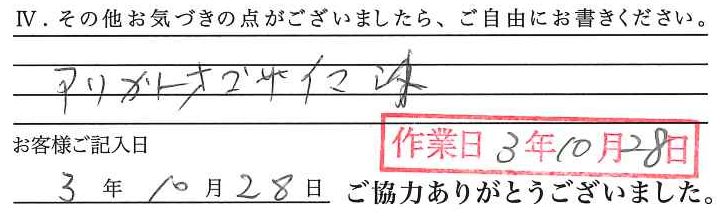 Ⅳ．その他お気づきの点がございましたら、ご自由にお書きください。
アリガトオゴザイマ
作業日 3年10月28日
お客様ご記入日
3 年 10 月 28 日 ご協力ありがとうございました。